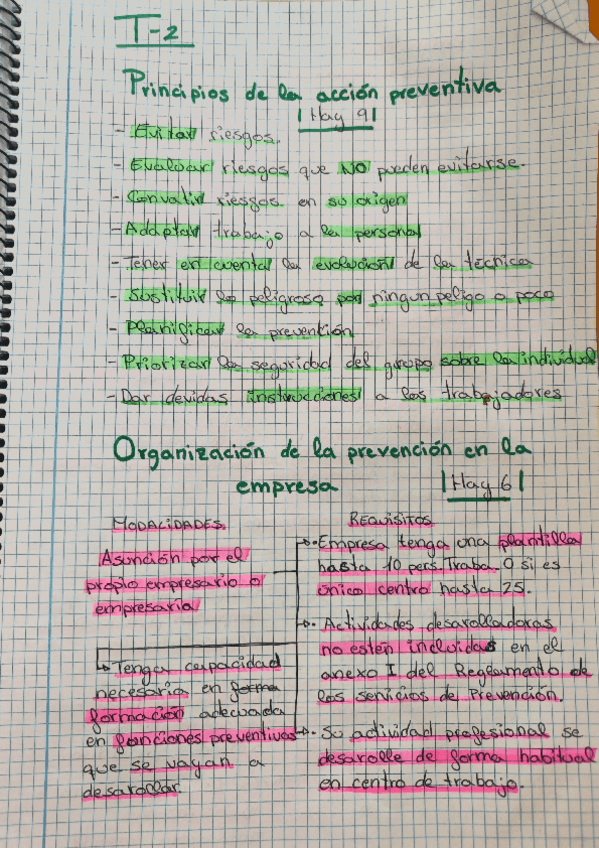 T-2
Principios de la acción preventiva
|Hay 9|
- Evitar riesgos.
- Evaluar riesgos que NO pueden evitarse.
- Convatir riesgos en su origen
- Adaptar trabajo a la personal
- Tener en cuenta la evolución de la técnica
- Sustituir lo peligroso por ningun peligo o poco
- Planificar la prevención
- Priorizar la seguridad del grupo sobre la individual
- Dar devidas instrucciones a los trabajadores
Organización de la prevención en la
empresa |Hay 6|
MODALIDADES.
Asunción por el
propio empresario o
empresaria
Tenga capacidad
necesaria en forma
formación adecuada
en funciones preventivas
que se vayan a
desarollar.
REQUISITOS
Empresa tenga una plantilla
hasta 10 pers. Traba. O si es
único centro hasta 25.
Actividades desarolladoras
no estén incluidas en el
anexo I del Reglamento de
los servicios de Prevención.
Su actividad profesional se
desarolle de forma habitual
en centro de trabajo.